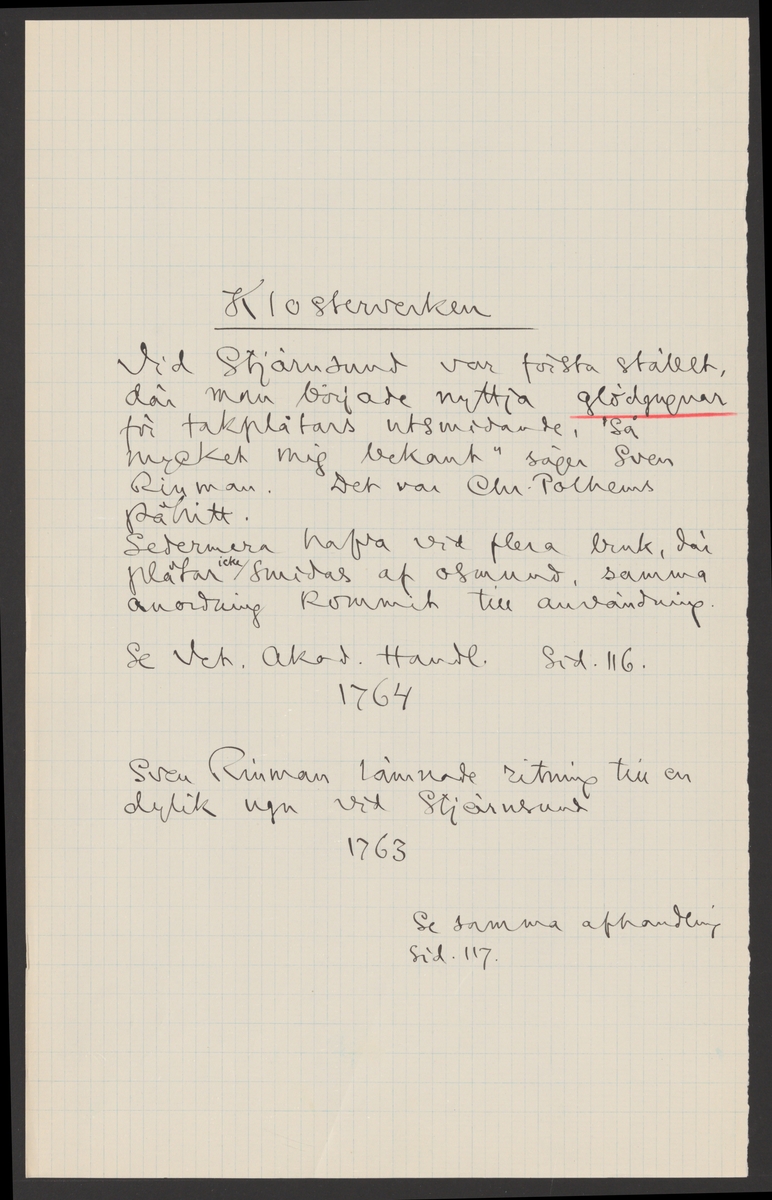 Klosterverken
Vid Stjärnsund var första stället,
där man började nyttja glödgugnar
för takplåtars utsmidande, "så
mycket mig bekant" säger Sven
Rinman. Det var Chr. Polhems
påhitt.
Sedermera hafva vid flera bruk, där
plåtar icke/ smidas af osmund, samma
anordning kommit till användning.
Se Vet. Akad. Handl. Sid. 116.
1764
Sven Rinman lämnade ritning till en
dylik ugn vid Stjärnsund
1763
Se samma afhandling
Sid. 117.